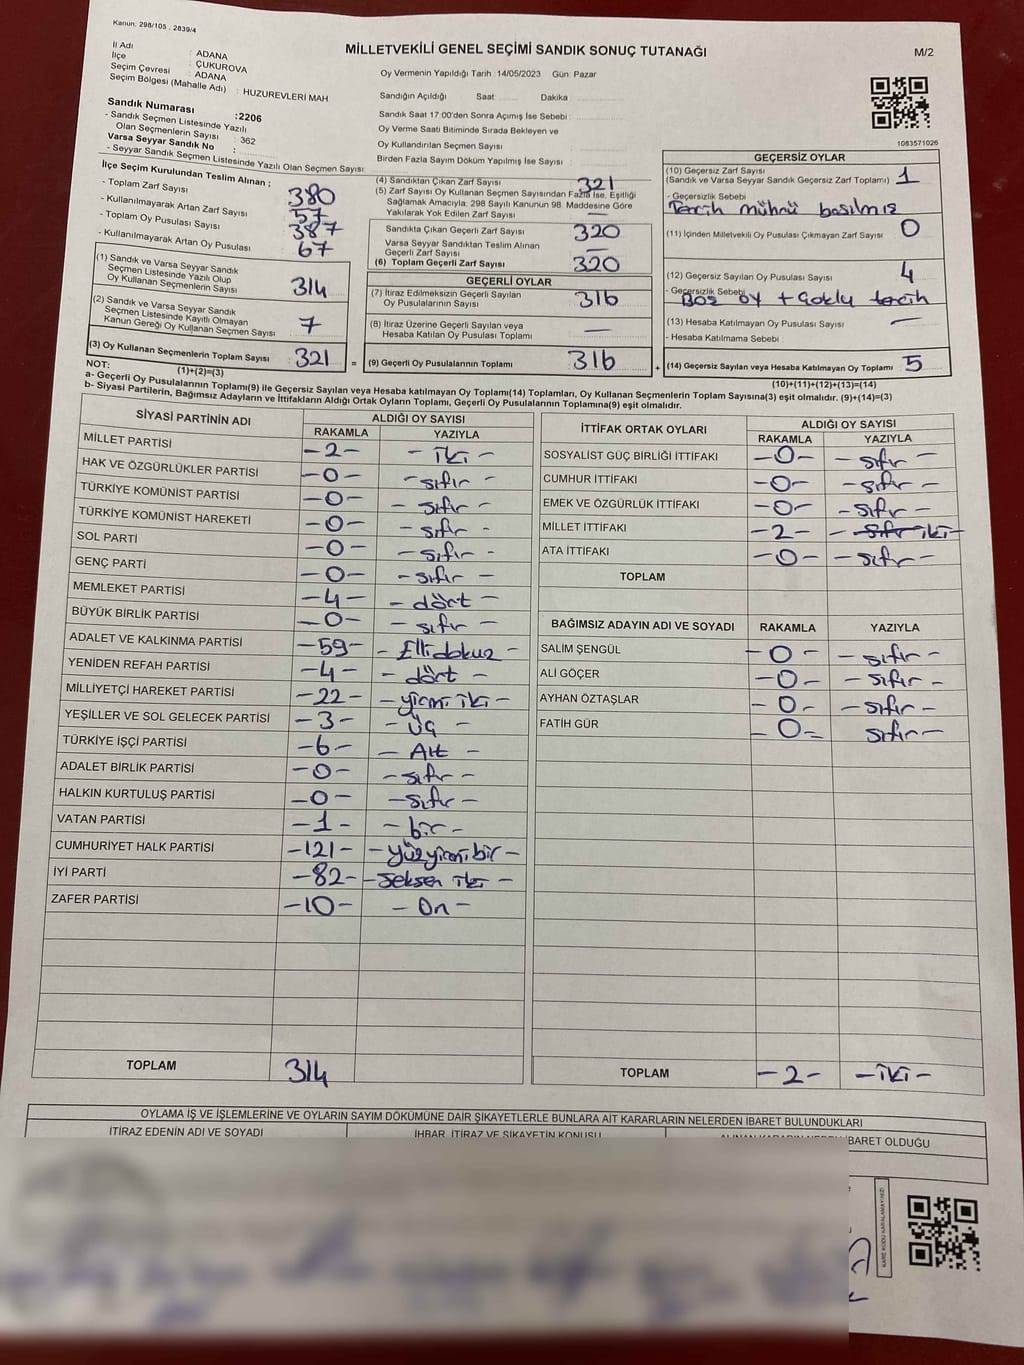 Kanun: 298/105 . 2839/4
MİLLETVEKİLİ GENEL SEÇİMİ SANDIK SONUÇ TUTANAĞI
M/2
İl Adı : ADANA
İlçe : ÇUKUROVA
Seçim Çevresi : ADANA
Seçim Bölgesi (Mahalle Adı) : HUZUREVLERİ MAH
Sandık Numarası :2206
- Sandık Seçmen Listesinde Yazılı
Olan Seçmenlerin Sayısı : 362
Varsa Seyyar Sandık No :
- Seyyar Sandık Seçmen Listesinde Yazılı Olan Seçmen Sayısı:
Oy Vermenin Yapıldığı Tarih :14/05/2023 Gün: Pazar
Sandığın Açıldığı Saat: Dakika
Sandık Saat 17:00'den Sonra Açımış İse Sebebi :
Oy Verme Saati Bitiminde Sırada Bekleyen ve
Oy Kullandırılan Seçmen Sayısı :
Birden Fazla Sayım Döküm Yapılmış İse Sayısı :
1083571026
İlçe Seçim Kurulundan Teslim Alınan ;
- Toplam Zarf Sayısı 380
- Kullanılmayarak Artan Zarf Sayısı 57
- Toplam Oy Pusulası Sayısı 387
- Kullanılmayarak Artan Oy Pusulası 67
(1) Sandık ve Varsa Seyyar Sandık
Seçmen Listesinde Yazılı Olup
Oy Kullanan Seçmenlerin Sayısı 314
(2) Sandık ve Varsa Seyyar Sandık
Seçmen Listesinde Kayıtlı Olmayan
Kanun Gereği Oy Kullanan Seçmen Sayısı 7
(3) Oy Kullanan Seçmenlerin Toplam Sayısı 321 =
(1)+(2)=(3)
(4) Sandıktan Çıkan Zarf Sayısı 321
(5) Zarf Sayısı Oy Kullanan Seçmen Sayısından Fazla İse, Eşitliği
Sağlamak Amacıyla; 298 Sayılı Kanunun 98. Maddesine Göre
Yakılarak Yok Edilen Zarf Sayısı —
Sandıkta Çıkan Geçerli Zarf Sayısı 320
Varsa Seyyar Sandıktan Teslim Alınan
Geçerli Zarf Sayısı —
(6) Toplam Geçerli Zarf Sayısı 320
GEÇERLİ OYLAR
(7) İtiraz Edilmeksizin Geçerli Sayılan
Oy Pusulasının Sayısı 316
(8) İtiraz Üzerine Geçerli Sayılan veya
Hesaba Katılan Oy Pusulası Toplamı —
(9) Geçerli Oy Pusulalarının Toplamı 316 +
GEÇERSİZ OYLAR
(10) Geçersiz Zarf Sayısı
(Sandık ve Varsa Seyyar Sandık Geçersiz Zarf Toplamı) 1
- Geçersizlik Sebebi
Tercih mührü basılmış
(11) İçinden Milletvekili Oy Pusulası Çıkmayan Zarf Sayısı 0
(12) Geçersiz Sayılan Oy Pusulası Sayısı 4
- Geçersizlik Sebebi
Boş oy + Çoklu tercih
(13) Hesaba Katılmayan Oy Pusulası Sayısı —
- Hesaba Katılmama Sebebi
(14) Geçersiz Sayılan veya Hesaba Katılmayan Oy Toplamı 5
(10)+(11)+(12)+(13)=(14)
NOT:
a- Geçerli Oy Pusulalarının Toplamı(9) ile Geçersiz Sayılan veya Hesaba katılmayan Oy Toplamı(14) Toplamları, Oy Kullanan Seçmenlerin Toplam Sayısına(3) eşit olmalıdır. (9)+(14)=(3)
b- Siyasi Partilerin, Bağımsız Adayların ve İttifakların Aldığı Ortak Oyların Toplamı, Geçerli Oy Pusulalarının Toplamına(9) eşit olmalıdır.
SİYASİ PARTİNİN ADI ALDIĞI OY SAYISI
RAKAMLA YAZIYLA
MİLLET PARTİSİ -2- - iki -
HAK VE ÖZGÜRLÜKLER PARTİSİ -0- - sıfır -
TÜRKİYE KOMÜNİST PARTİSİ -0- - sıfır -
TÜRKİYE KOMÜNİST HAREKETİ -0- - sıfır -
SOL PARTİ -0- - sıfır -
GENÇ PARTİ -0- - sıfır -
MEMLEKET PARTİSİ -4- - dört -
BÜYÜK BİRLİK PARTİSİ -0- - sıfır -
ADALET VE KALKINMA PARTİSİ -59- - Ellidokuz -
YENİDEN REFAH PARTİSİ -4- - dört -
MİLLİYETÇİ HAREKET PARTİSİ -22- - yirmi iki -
YEŞİLLER VE SOL GELECEK PARTİSİ -3- - üç -
TÜRKİYE İŞÇİ PARTİSİ -6- - Altı -
ADALET BİRLİK PARTİSİ -0- - sıfır -
HALKIN KURTULUŞ PARTİSİ -0- - sıfır -
VATAN PARTİSİ -1- - bir -
CUMHURİYET HALK PARTİSİ -121- - yüzyirmibir -
İYİ PARTİ -82- - seksen iki -
ZAFER PARTİSİ -10- - On -
TOPLAM 314
İTTİFAK ORTAK OYLARI ALDIĞI OY SAYISI
RAKAMLA YAZIYLA
SOSYALIST GÜÇ BİRLİĞİ İTTİFAKI -0- - sıfır -
CUMHUR İTTİFAKI -0- - sıfır -
EMEK VE ÖZGÜRLÜK İTTİFAKI -0- - sıfır -
MİLLET İTTİFAKI -2- - sıfır iki -
ATA İTTİFAKI -0- - sıfır -
TOPLAM
BAĞIMSIZ ADAYIN ADI VE SOYADI RAKAMLA YAZIYLA
SALİM ŞENGÜL -0- - sıfır -
ALİ GÖÇER -0- - sıfır -
AYHAN ÖZTAŞLAR -0- - sıfır -
FATİH GÜR -0- sıfır -
TOPLAM -2- - iki -
OYLAMA İŞ VE İŞLEMLERİNE VE OYLARIN SAYIM DÖKÜMÜNE DAİR ŞİKAYETLERLE BUNLARA AİT KARARLARIN NELERDEN İBARET BULUNDUKLARI
İTİRAZ EDENİN ADI VE SOYADI
İHBAR, İTİRAZ VE ŞİKAYETİN KONUSU
ALINAN KARARIN NEDEN İBARET OLDUĞU
KARE KODU KARALAMAYINIZ!